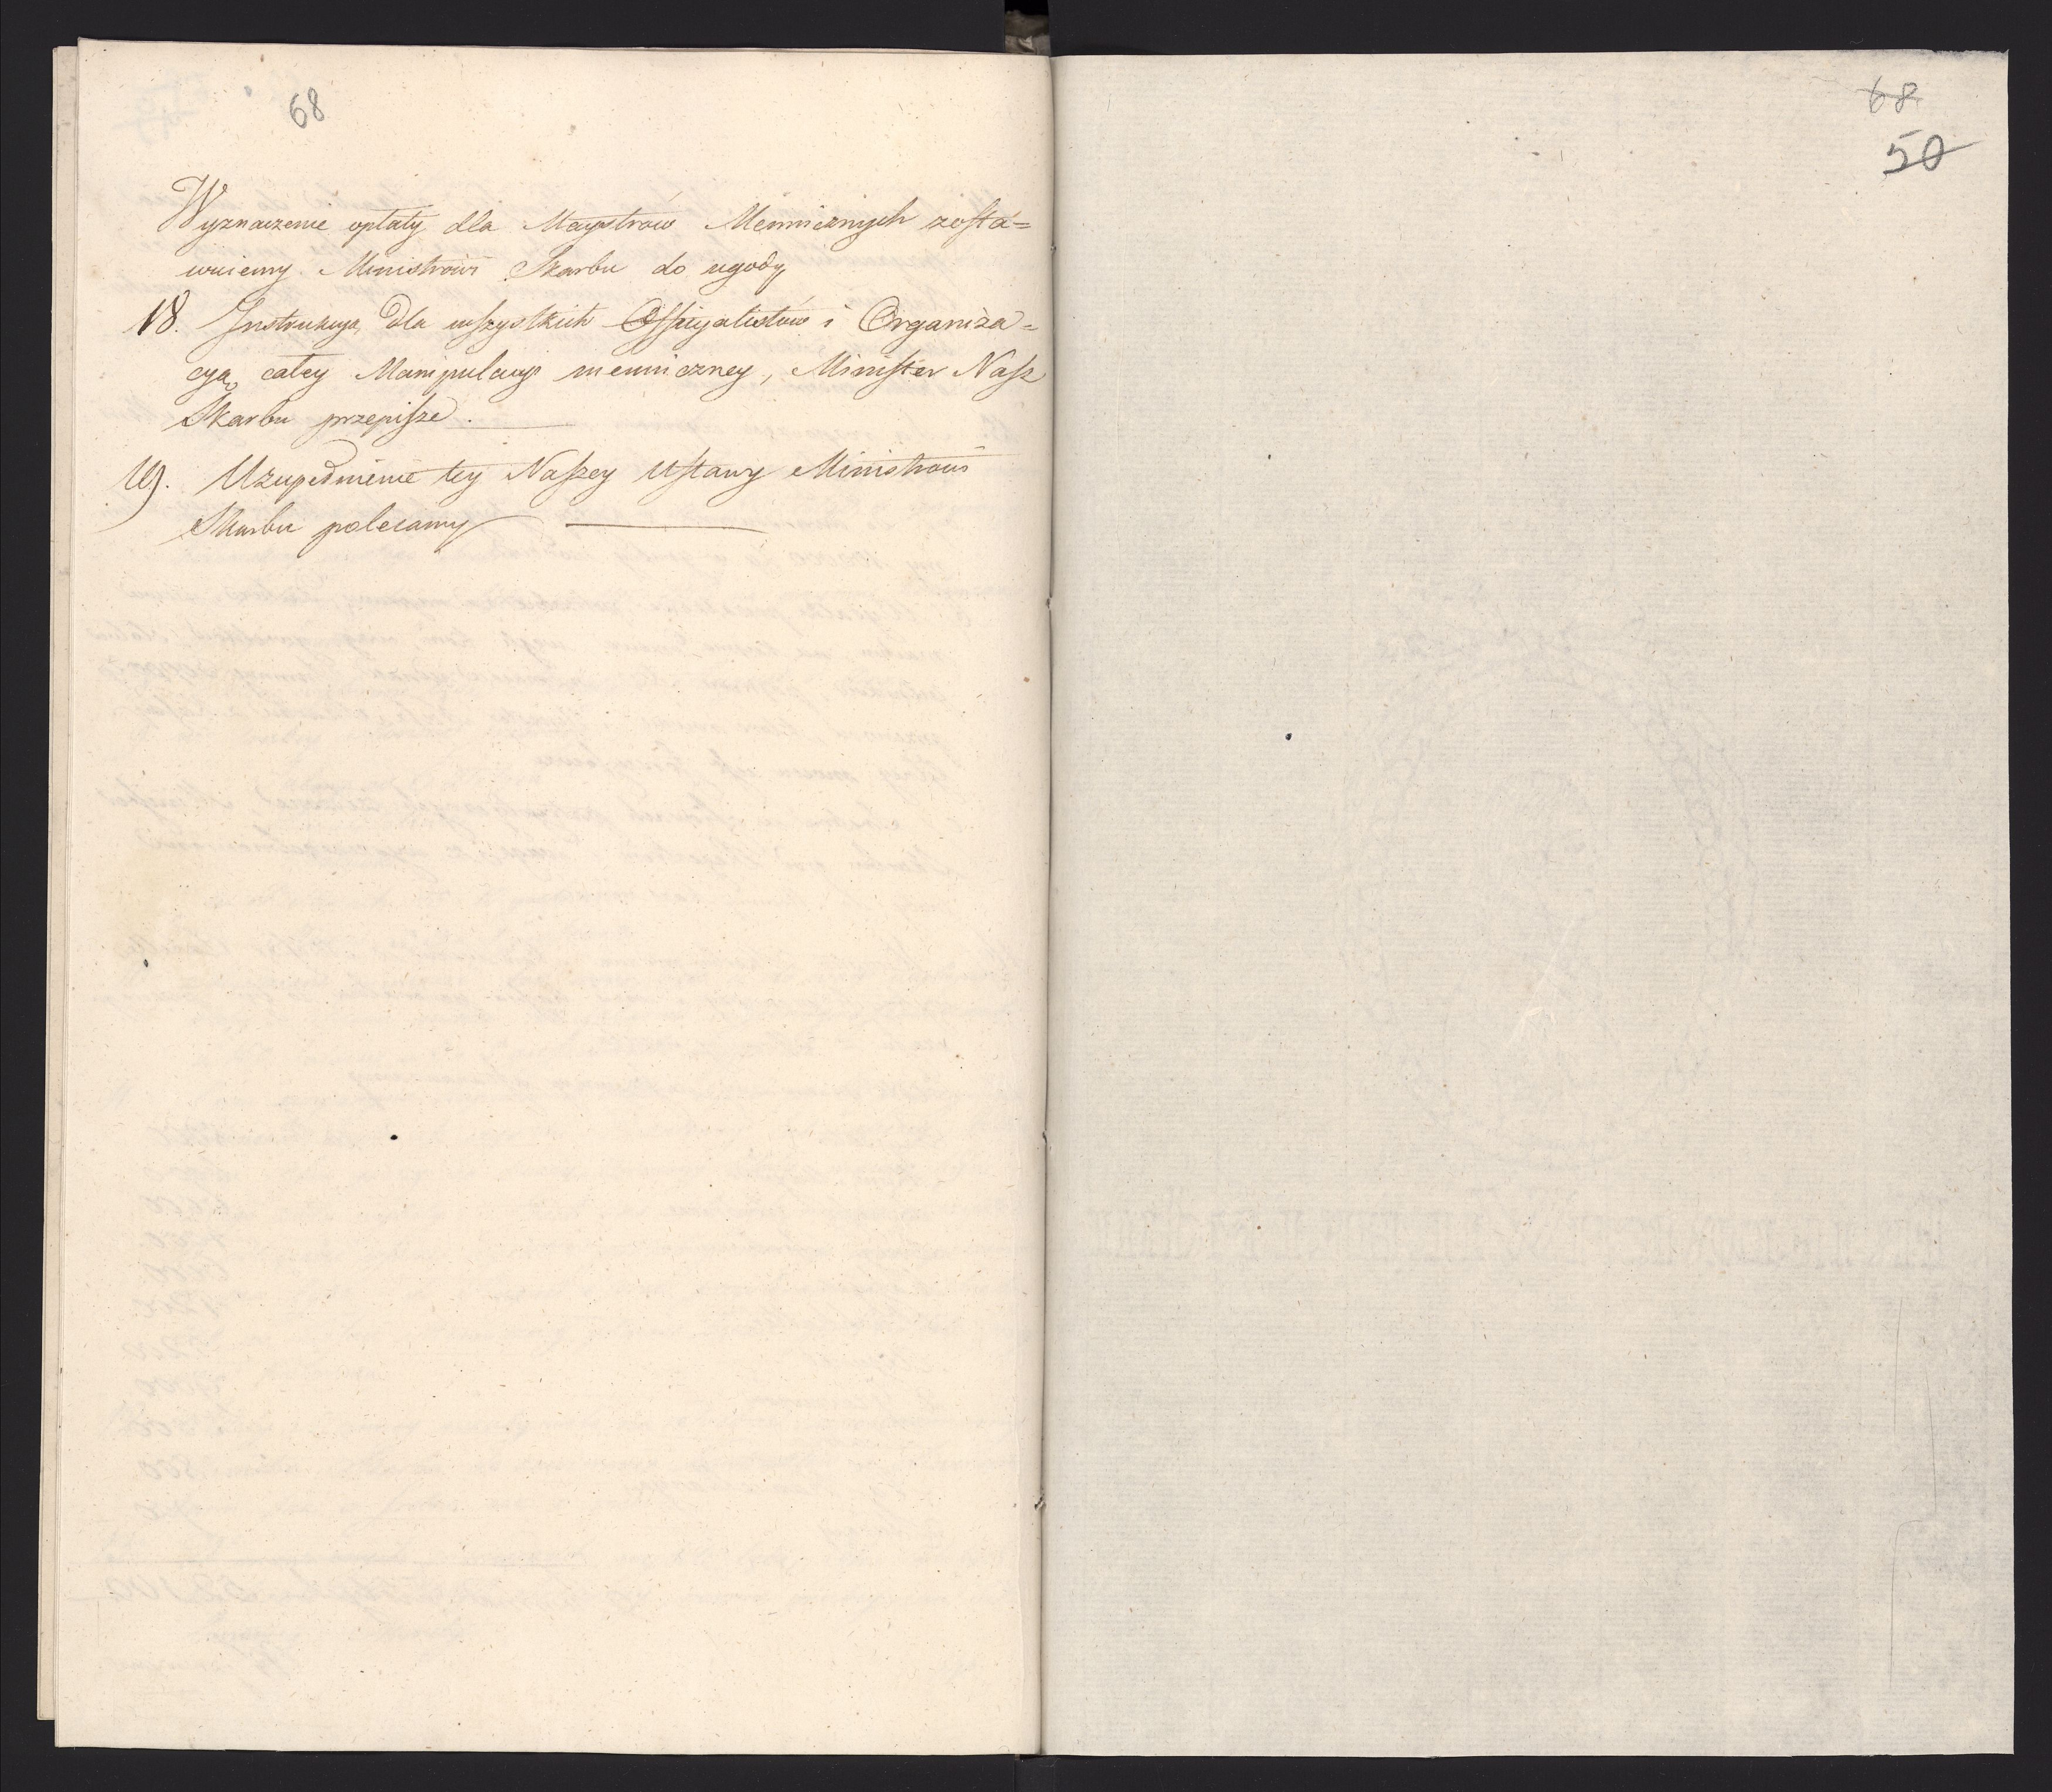 68
Wyznaczenie opłaty dla Maystrów Menniczných zosta=
wuiemy Ministrowi Skarbu do ugody
18. Instrukcyą dla wszystkich Officyalistów i Organiza=
cyą całey Manipulacyi menniczney, Minister Nasz
Skarbu przepisze.
19. Uzupełnienie tey Naszey Ustawy Ministrowi
Skarbu polecamy
68
50